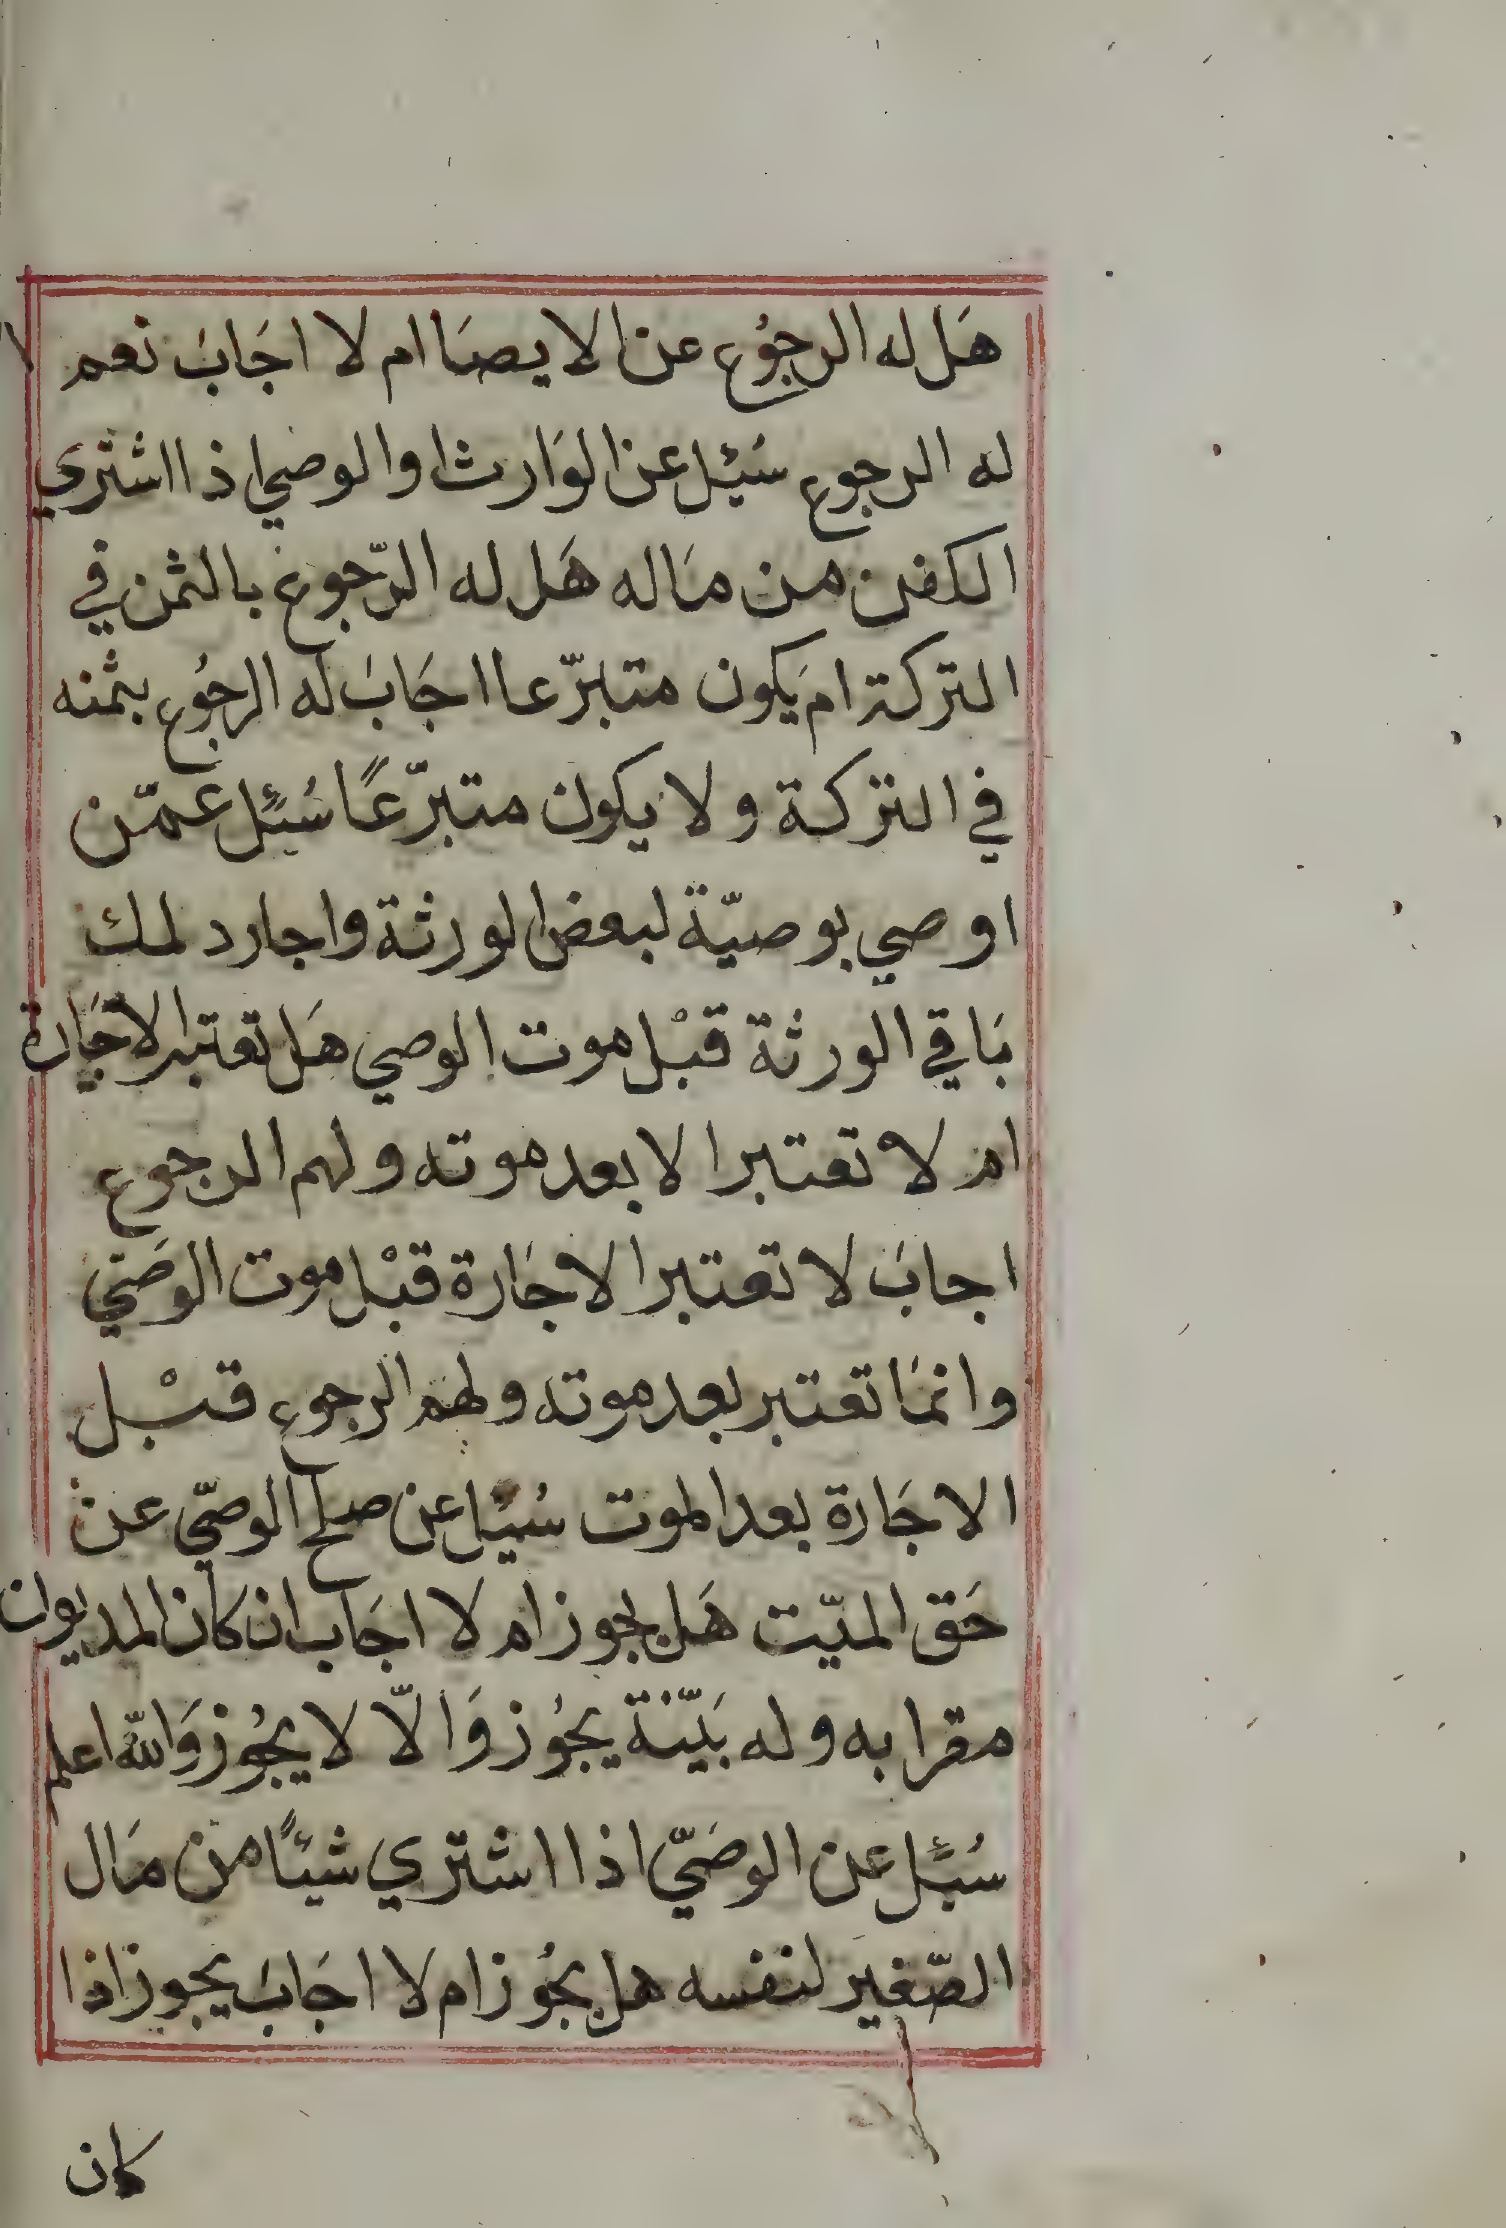 هَل له الرجوُع عن الايصَا ام لا اجَابَ نعم
له الرجوع سُئِل عن الوَارث او الوصي اذا اشتري
الكفن من مَاله هَل له الرّجوع بالثمن في
التركة ام يَكون متبرّعا اجَابَ له الرجوُع بثمنه
في التركة ولا يكون متبرّعًا سُئِل عمّن
اوصي بوصيّة لبعض الورثة واجار ذلك
بَاقي الورثة قبْل موت الوصي هَل تعتبر الاجَارة
ام لا تعتبر الا بعد موته ولهم الرجوع
اجابَ لا تعتبر الاجَارة قبْل موت الوصَيّ
وانمَا تعتبر بعد موته ولهم الرجوع قبْل
الاجَارة بعد الموت سُئِل عن صلح الوصّي عن
حَق الميّت هَل يجوز ام لا اجَاب ان كان المديوان
مقرا به وله بَيّنة يجوُز وَالّا لا يجوُز وَاللّه اعلم
سُئِل عن الوصَيّ اذا اشتري شيئًا من مَال
الصّغير لنفسه هل يجوُز ام لا اجَابَ يجوز اذا
كان